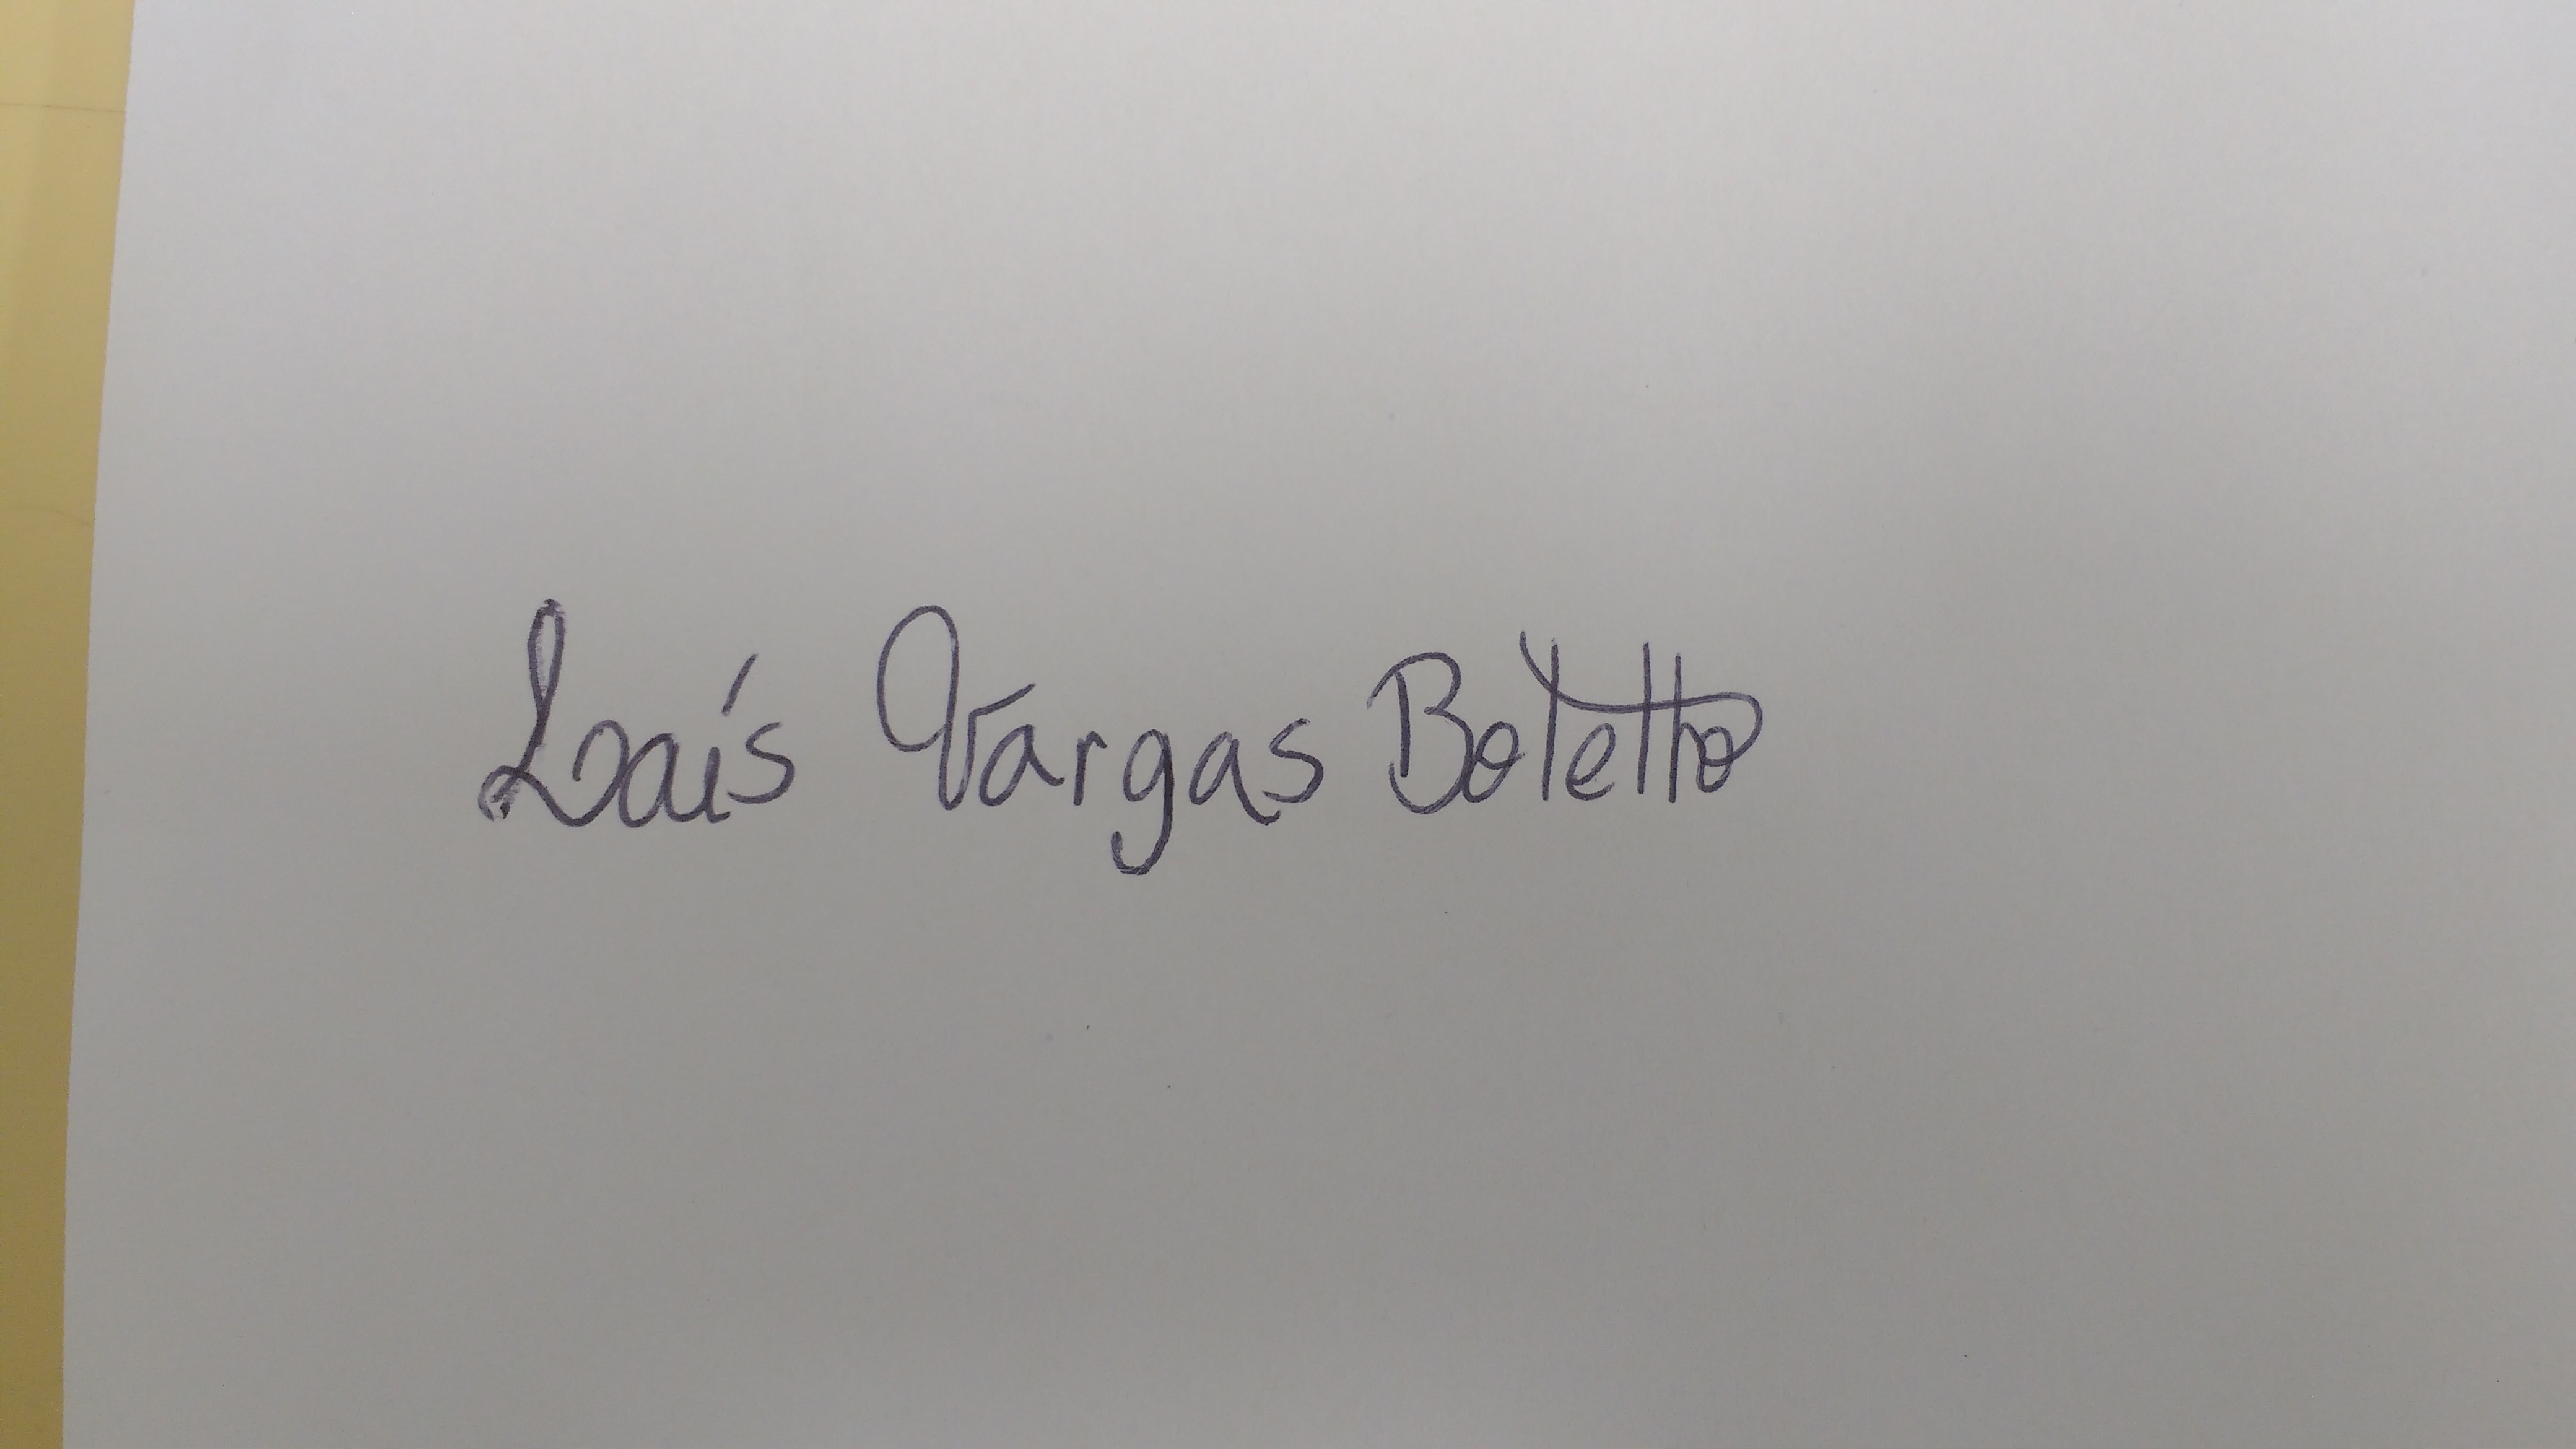 Laís Vargas Boletto